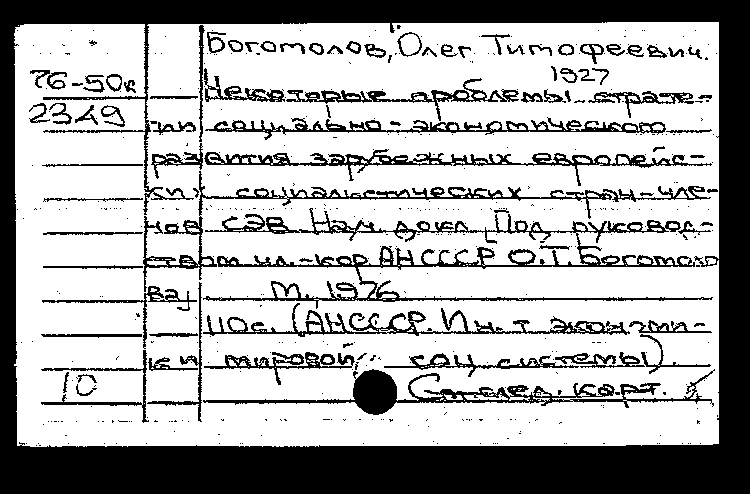 Богомолов, Олег Тимофеевич.
1927
76-50к
Некоторые проблемы страте-
2349
гии социально-экономического
развития зарубежных европейс-
ких социалистических стран-чле-
нов СЭВ Науч. докл [Под руковод-
ством чл.-кор АНСССР О.Т. Богомоло
ва]
М., 1976
110с. (АНСССР. Ин-т экономи-
ки мировой соц системы).
10
См. след. карт.